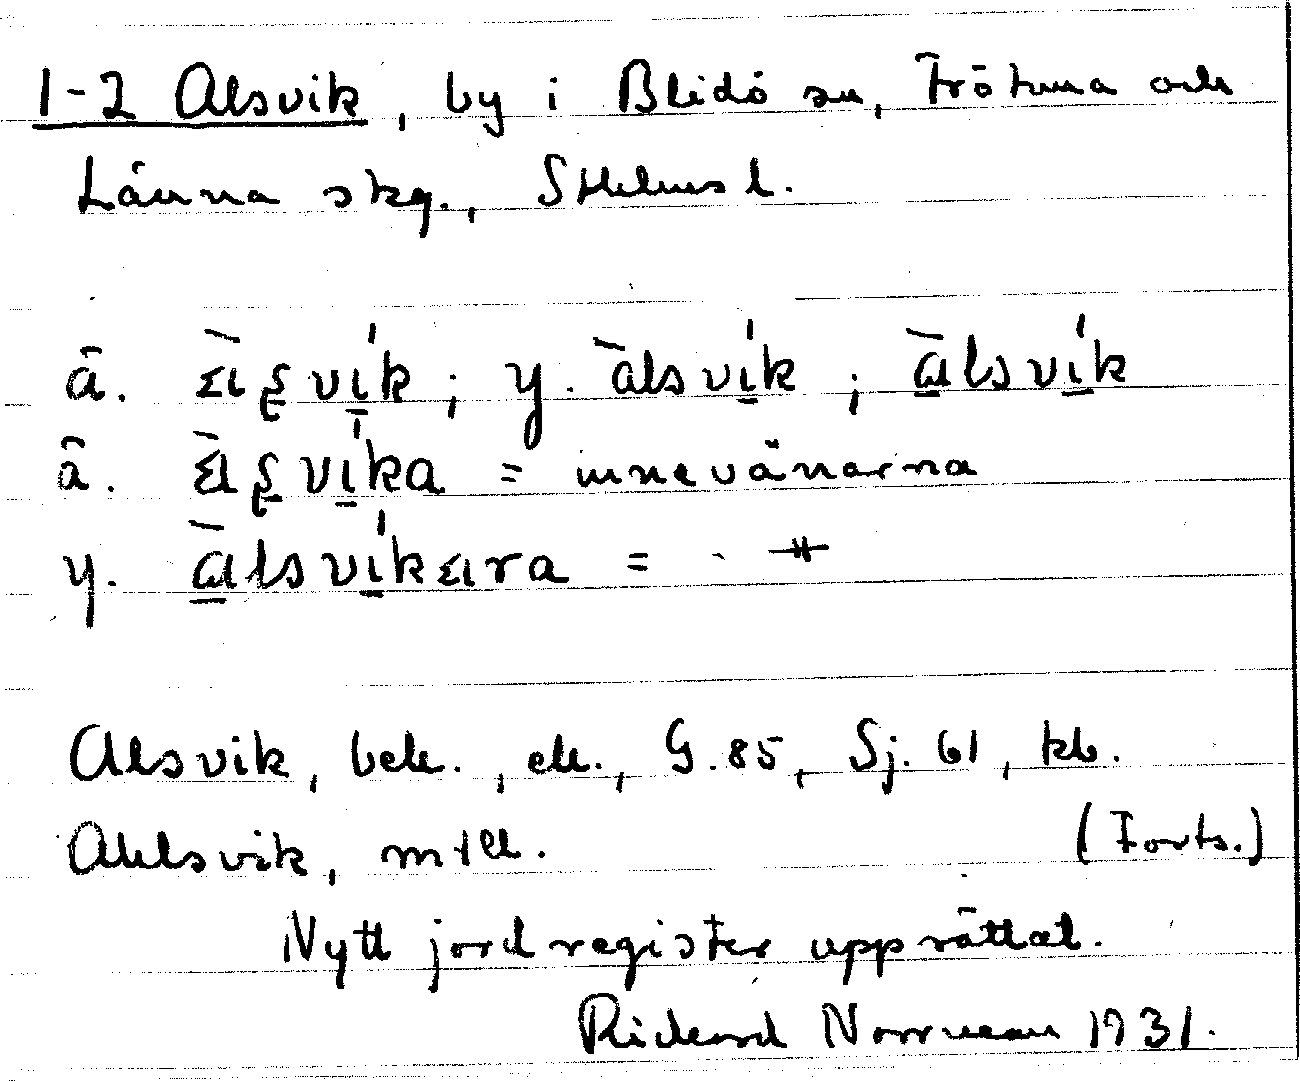 1-2 Alsvik, by i Blidö sn, Frötuna och
Länna skg., Sthlms l.
ä. y. àlsvik; àlsvik
ä. = innevånarna
y. àlsvíkara = -"-
Alsvik, bek., ek., G. 85, Sj. 61, kb.
Ahlsvik, mtll. (Forts.)
Nytt jordregister upprättat.
Rickard Norrman 1931.